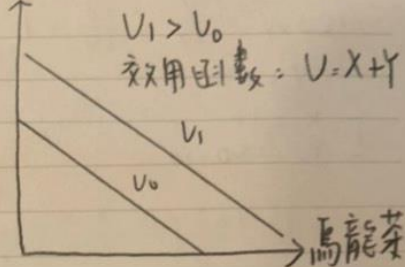 U₁ > U₀
效用函數: U=X+Y
U₁
U₀
烏龍茶